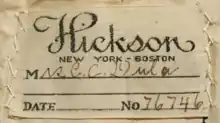 Hickson
NEW YORK - BOSTON
Mrs. C. C. Dula
DATE No 76746